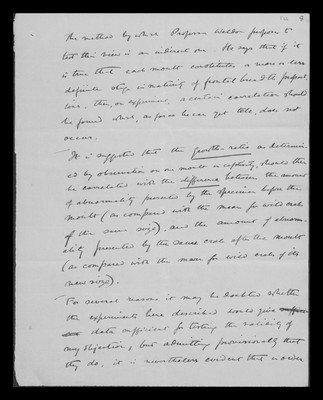 The method by which Professor Weldon proposes to
test this view is an indirect one. He says that if it
is true that each moult constitutes a more or less
definite step in maturing of frontal breadth proport-
ions, then, on experiment, a certain correlation should
be found which, as far as he can yet tell, does not
occur.
It is suggested that the growth-ratio as determin-
ed by observation on one moult in captivity, should then
be correlated with the difference between the amount
of abnormality presented by the specimen before the
moult (as compared with the mean for wild crabs
of the same size), and the amount of abnorm-
ality presented by the same crab after the moult
(as compared with the mean for wild crabs of its
new size).
For several reasons it may be doubted whether
the experiments here described would give
data sufficient for testing the validity of
my objection, but admitting provisionally that
they do, it is nevertheless evident that in order